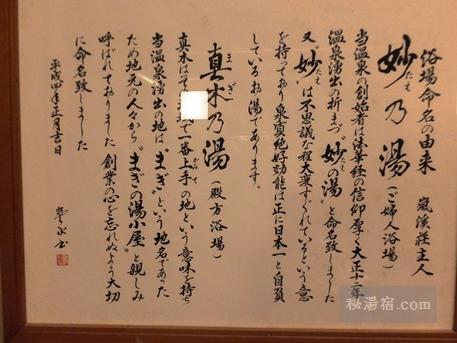 浴場命名の由来
嵐渓荘主人
妙乃湯(ご婦人浴場)
たえ
当温泉の創始者は法華経の信仰厚く大正十二年
温泉湧出の折まづ"妙の湯"と命名致しました
たえ
又妙は不思議な程大変すぐれているという意
たえ
を持っており泉質絶好効能は正に日本一と自負
しているお湯であります。
真木乃湯(殿方浴場)
まぎ
真木は 一番上手の地という意味を持ち
当温泉湧出の地は"まぎ"という地名であった
ため地元の人々から"まぎの湯小屋"と親しみ
呼ばれておりました 創業の心を忘れぬよう大切
に命名致しました
平成四年正月吉日
秘湯宿.com